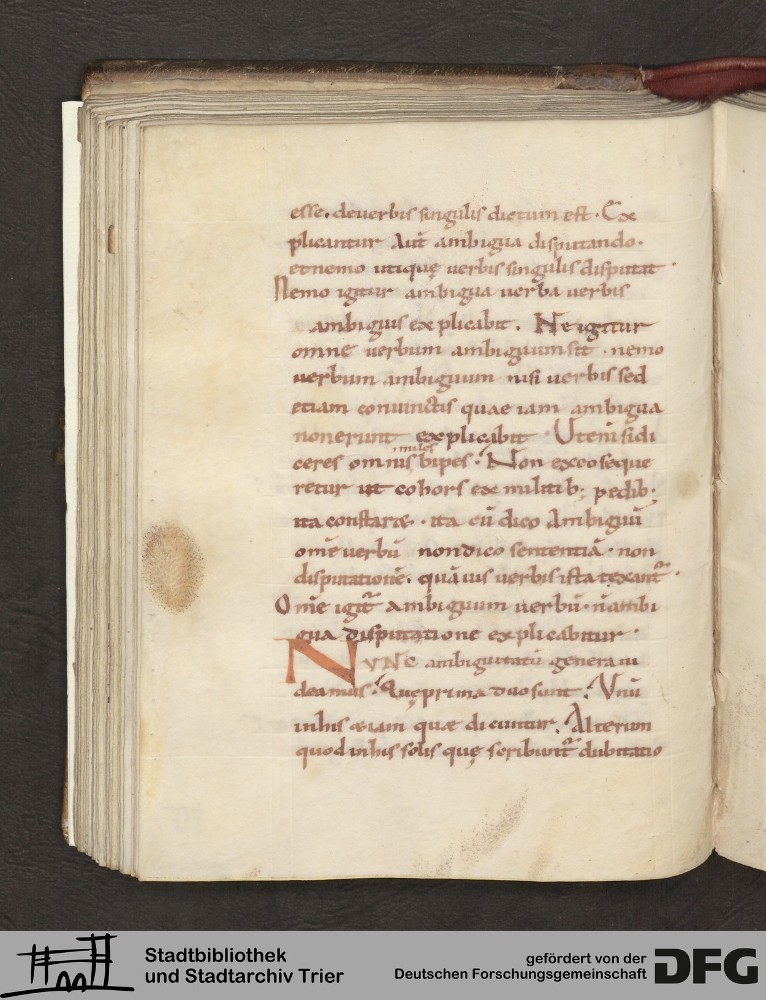 esse. deuerbis singulis dictum est. Ex
plicantur Aut̄ ambigua disputando.
et nemo utique uerbis singulis disputat.
Nemo igitur ambigua uerba uerbis
ambiguis explicabit. Ne igitur
omne uerbum ambiguum sit. nemo
uerbum ambiguum nisi uerbis sed
etiam coniunctis quae iam ambigua
non erunt explicabit. Utenī si di
miles
ceres omnis bipes. Non ex eo seque
retur ut cohors ex militib; pedib;
ita constaret. ita cū dico Ambiguū
om̄e uerbū non dico sententiā. non
disputationē. quāuis uerbis ista texant̄.
Om̄e igit̄ ambiguum uerbū. n̄ ambi
gua disputatione explicabitur.
NVNC ambiguitatū genera ui
deamus. Quę prima duo sunt. Vnū
in his etiam quae dicuntur. Alterum
quod in his solis quę scribunt̄ dubitatio
Stadtbibliothek
und Stadtarchiv Trier
gefördert von der
Deutschen Forschungsgemeinschaft
DFG